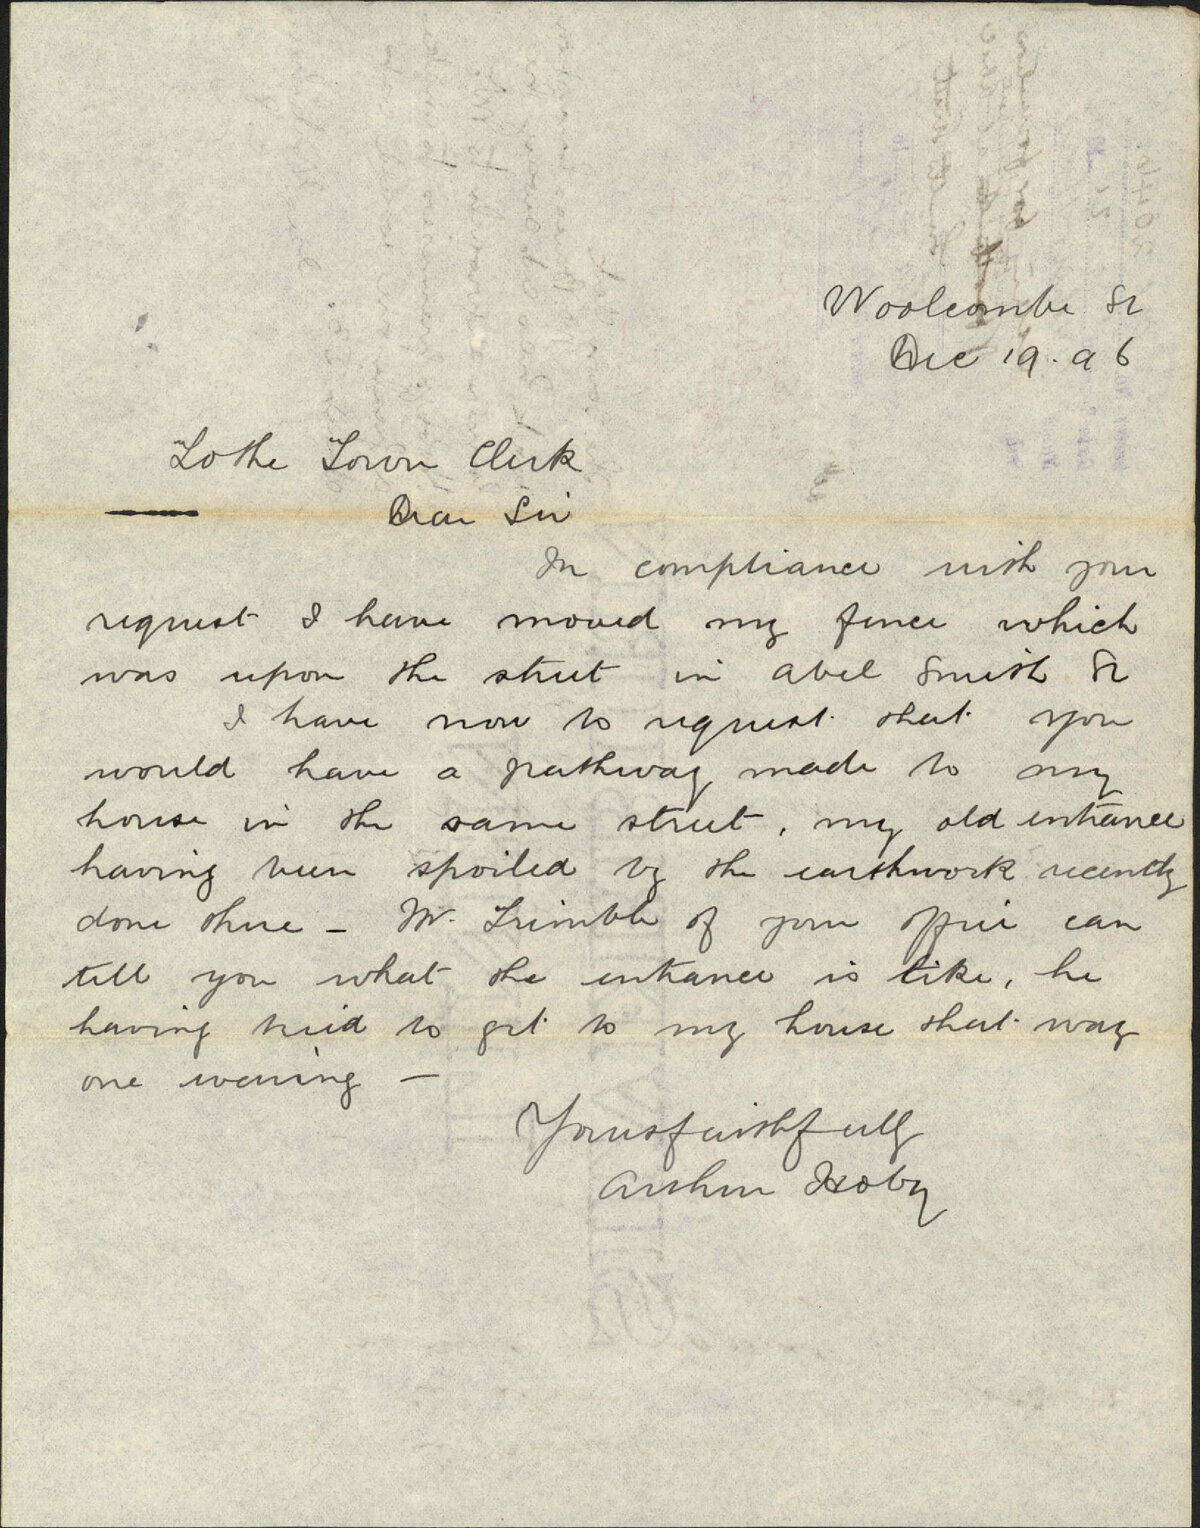 Woolcombe St
Dec 19. 96
To the Town Clerk
Dear Sir
In compliance with your
request I have moved my fence which
was upon the street in Abel Smith St
I have now to request that you
would have a pathway made to my
house in the same street, my old entrance
having been spoiled by the earthwork recently
done there – Mr. Trimble of your office can
tell you what the entrance is like, he
having tried to get to my house that way
one evening –
Yours faithfully
Arthur Hoby